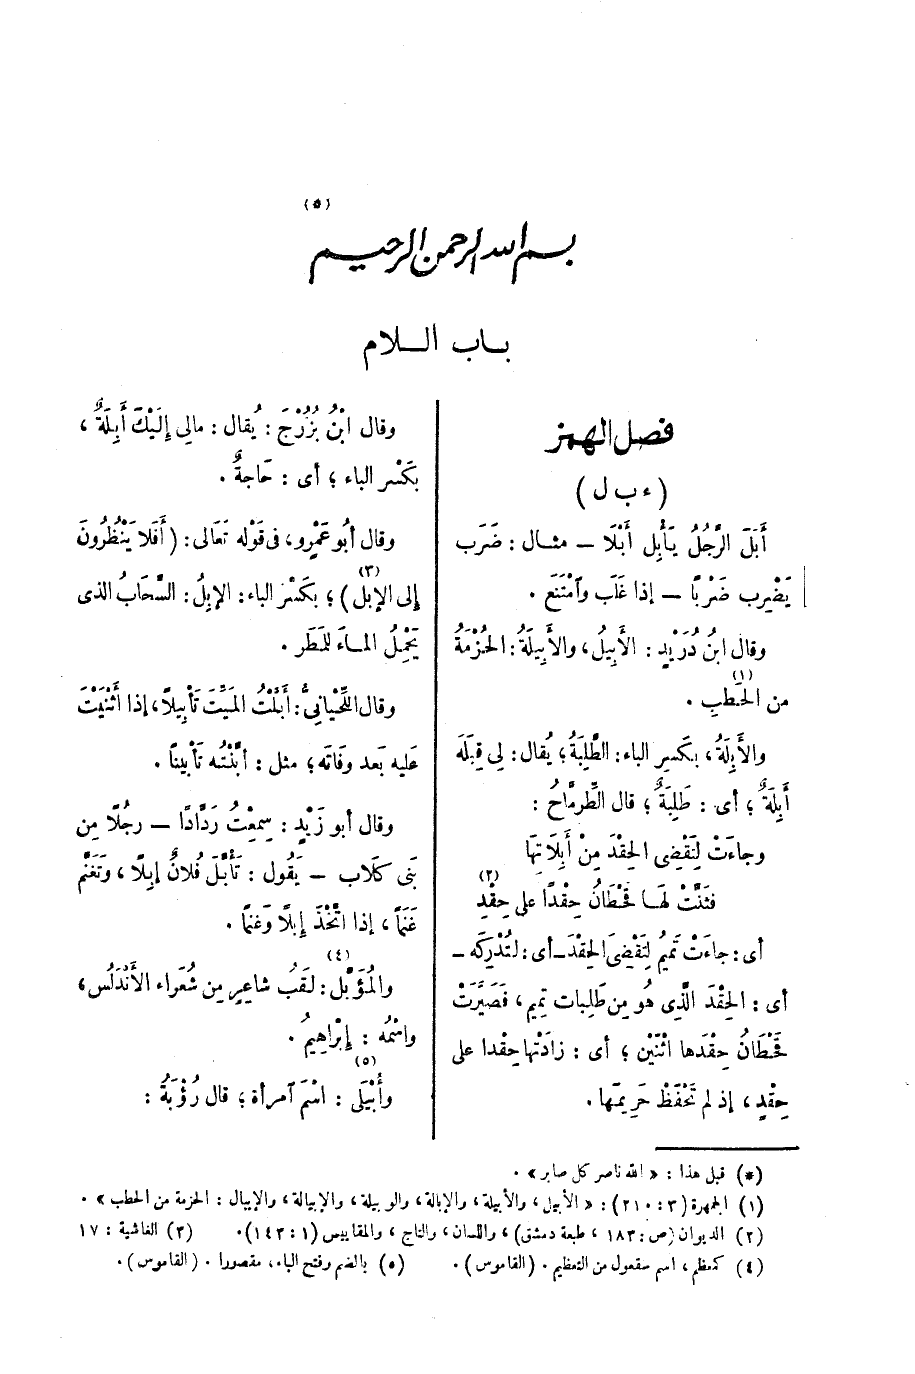 (*)
بسم الله الرحمن الرحيم
باب الـلام
فصل الهمز
(ء ب ل)
أَبَلَ الرَّجُلُ يَأْبِل أَبْلًا – مثـال : ضَرَب
يَضْرِب ضَرْبًا – إذا غَلَب وٱمْتَنَع .
وقال ابنُ دُرَيْدٍ : الأَبِيلُ، والأَبِيلَةُ : الحُزْمَةُ
من الحَطَبِ (١) .
والأَبِلَةُ ، بكَسرِ الباء : الطَّلِبَةُ ؛ يُقال : لِى قِبَلَه
أَبِلَةٌ ؛ أى : طَلِبَةٌ ؛ قال الطِّرِمَّاحُ :
وجاءَتْ لِتَقْضِى الحِقْدَ مِنْ أَبِلَاتِهَا
فثَنَّتْ لَهـا قَحْطَانُ حِقْدًا على حِقْدِ (٢)
أى : جاءَتْ تَمِيمُ لِتَقْضِىَ الحِقْدَ – أى : لتُدْرِكَه –
أى : الحِقْدَ الَّذِى هُو مِن طَلِبات تمِيم ، فَصَيَّرَتْ
قَحْطَانُ حِقْدَها اثْنَيْن ؛ أى : زادَتْها حِقْدا على
حِقْدٍ ، إذ لم تَحْفَظْ حَرِيمَها .
وقال ابْنُ بُزُرْجَ : يُقال : مالِى إلَيْكَ أَبِلَةٌ ،
بكَسْرِ الباء ؛ أى : حَاجةٌ .
وقال أبُو عَمْرٍو، فى قَوْله تَعَالى : (أَفَلا يَنْظُرُونَ
إلى الإبِل) (٣) ؛ بكَسْرِ الباء : الإبِلُ : السَّحَابُ الذى
يَحْمِلُ المـاءَ للمَطَر .
وقال اللِّحْيانِىُّ : أَبَّلْتُ المَيِّتَ تَأْبِيلًا، إذا أَثْنَيْتَ
عَليه بَعد وفَاته ؛ مثل : أبَّنْتُـه تَأْبينًا .
وقال أبو زَيْدٍ : سمِعْتُ رَدَّادًا – رجُلًا مِن
بَنى كلَاب – يَقُول : تَأَبَّلَ فُلانٌ إبِلًا ، وتَغَنَّم
غَنَمًا ، إذا اتَّخَذَ إبِلًا وَغَنمًا .
والمُؤَبَّل (٤) : لَقَبُ شاعِرٍ مِن شُعَراء الأَنْدَلُس ،
واسْمُه : إبْرَاهِيمُ .
وأُبَلَى (٥) : اسْمَ ٱمرأة ؛ قال رُؤْبَةُ :
(*) قبل هذا : « الله ناصر كل صابر » .
(١) الجمهرة (٣ : ٢١٠) : « الأبيل ، والأبيلة ، والإبالة ، والوبيلة ، والإيبالة ، والإيبال : الحزمة من الحطب » .
(٢) الديوان (ص : ١٨٣ ، طبعة دمشق) ، واللسان ، والتاج ، والمقاييس (١ : ١٤٣) . (٣) الغاشية : ١٧
(٤) كمعظم ، اسم مفعول من التعظيم . (القاموس) . (٥) بالضم وفتح الباء ، مقصورا . (القاموس) .